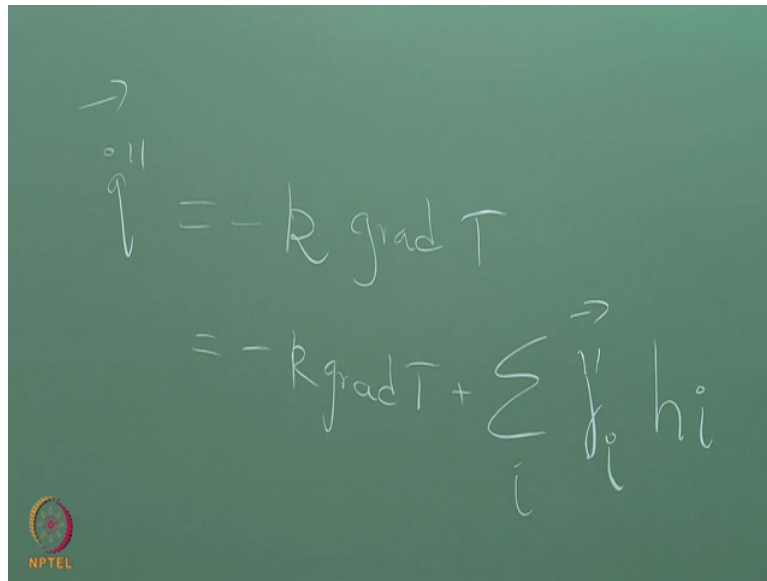 →
q̇'' = - k grad T
= - k grad T + ∑ᵢ j⃗ᵢ'' hᵢ
NPTEL